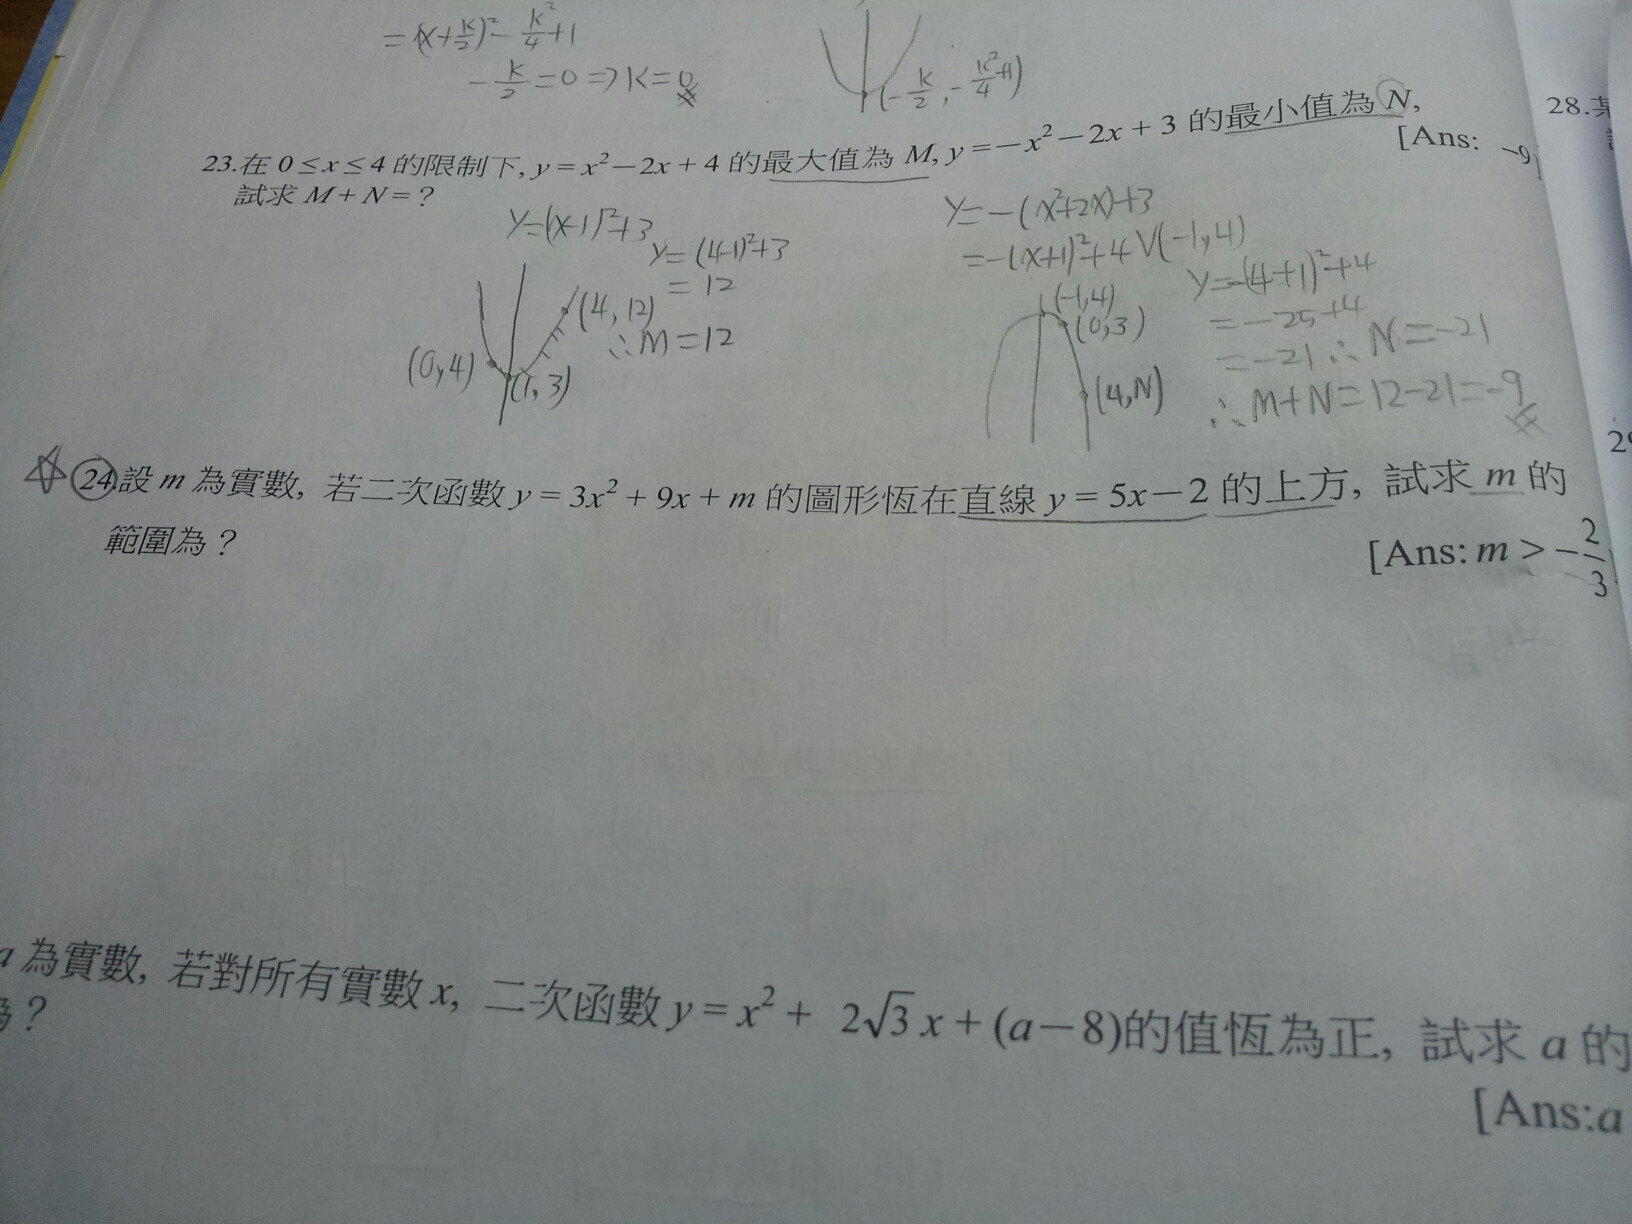 = (x+k/2)² - k²/4 +1
-k/2 = 0 ⇒ k=0
(-k/2, -k²/4+1)
23.在 0 ≤ x ≤ 4 的限制下, y = x² − 2x + 4 的最大值為 M, y = −x² − 2x + 3 的最小值為 N,
試求 M + N = ?
[Ans: -9]
y=(x-1)²+3
y=(4-1)²+3
= 12
(4, 12)
∴M=12
(0,4)
(1,3)
y=-(x²+2x)+3
=-(x+1)²+4 V(-1,4)
y=-(4+1)²+4
=-25+4
=-21 ∴N=-21
∴M+N=12-21=-9
(-1,4)
(0,3)
(4,N)
24.設 m 為實數, 若二次函數 y = 3x² + 9x + m 的圖形恆在直線 y = 5x − 2 的上方, 試求 m 的
範圍為？
[Ans: m > −2/3]
a 為實數, 若對所有實數 x, 二次函數 y = x² + 2√3 x + (a − 8)的值恆為正, 試求 a 的
為？
[Ans:a
28.某
29